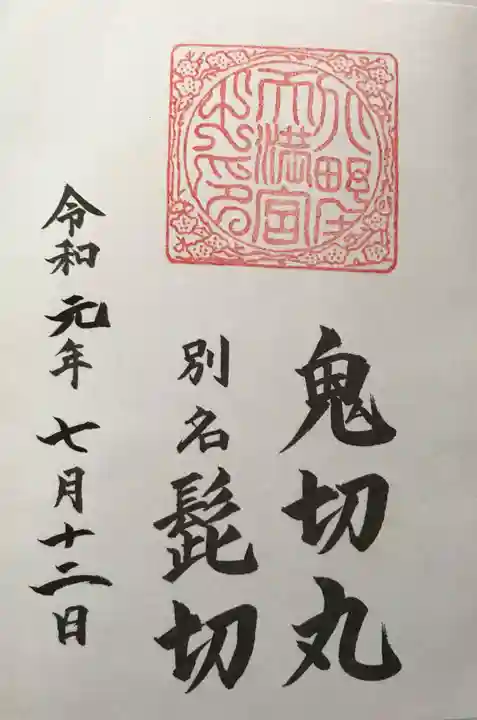 天満宮
鬼切丸
別名 髭切
令和元年七月十二日